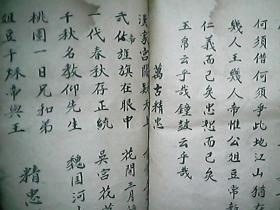 何須借何須爭此地江山猶
幾人王幾人帝惟公俎豆常
仁義而已矣忠恕而已矣
玉帛云乎哉鐘鼓云乎哉
萬古精忠
漢家宮闕
花開三月
旌旗在眼中
一代春秋存正統
吳宮花
千秋名教仰先生
魏國河
桃園一日兄和弟
俎豆千秋帝與王
精忠